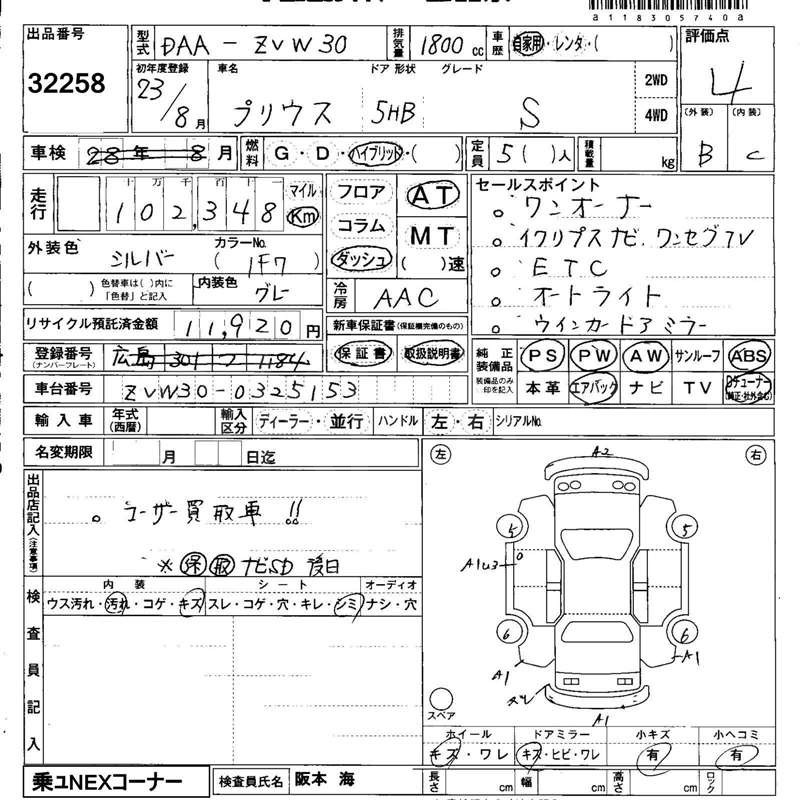 a1183057740a
出品番号 型式 DAA - ZVW30 排気量 1800 cc 車歴 自家用・レンタ・( ) 評価点
32258 4
初年度登録 車名 ドア 形状 グレード 2WD
23/8月 プリウス 5HB S 4WD (外装) B (内装) C
車検 28年 8月 燃料 G・D・ハイブリッド・( ) 定員 5( )人 積載量 kg
走行 十万千百十一 102,348 マイル Km フロア AT セールスポイント
コラム MT 。ワンオーナー
外装色 シルバー カラーNo. ( 1F7 ) ダッシュ ( )速 。イクリプスナビ.ワンセグTV
( ) 色替車は( )内に「色替」と記入 内装色 グレー 冷房 AAC 。ETC
。オートライト
リサイクル預託済金額 11,920円 新車保証書(保証欄完備のもの) 。ウインカードアミラー
登録番号(ナンバープレート) 広島 301 1184 保証書 取扱説明書 純正装備品 PS PW AW サンルーフ ABS
車台番号 ZVW30-0325153 装備品のみ印を記入 本革 エアバック ナビ TV チューナー(純正・社外含む)
輸入車 年式(西暦) 輸入区分 ディーラー・並行 ハンドル 左・右 シリアルNo.
名変期限 月 日迄
左 右
出品店記入(注意事項)
。ユーザー買取車!!
※保 取 ナビSD 後日
検査員記入
内装 シート オーディオ
ウス汚れ・汚れ・コゲ・キズ スレ・コゲ・穴・キレ・シミ ナシ・穴
A2
5 5
A1
6 6
A1 A1
A1
スペア
ホイール ドアミラー 小キズ 小ヘコミ
キズ・ワレ キズ・ヒビ・ワレ 有 有
乗ュNEXコーナー 検査員氏名 阪本 海 長さ cm 幅 cm 高さ cm ロック